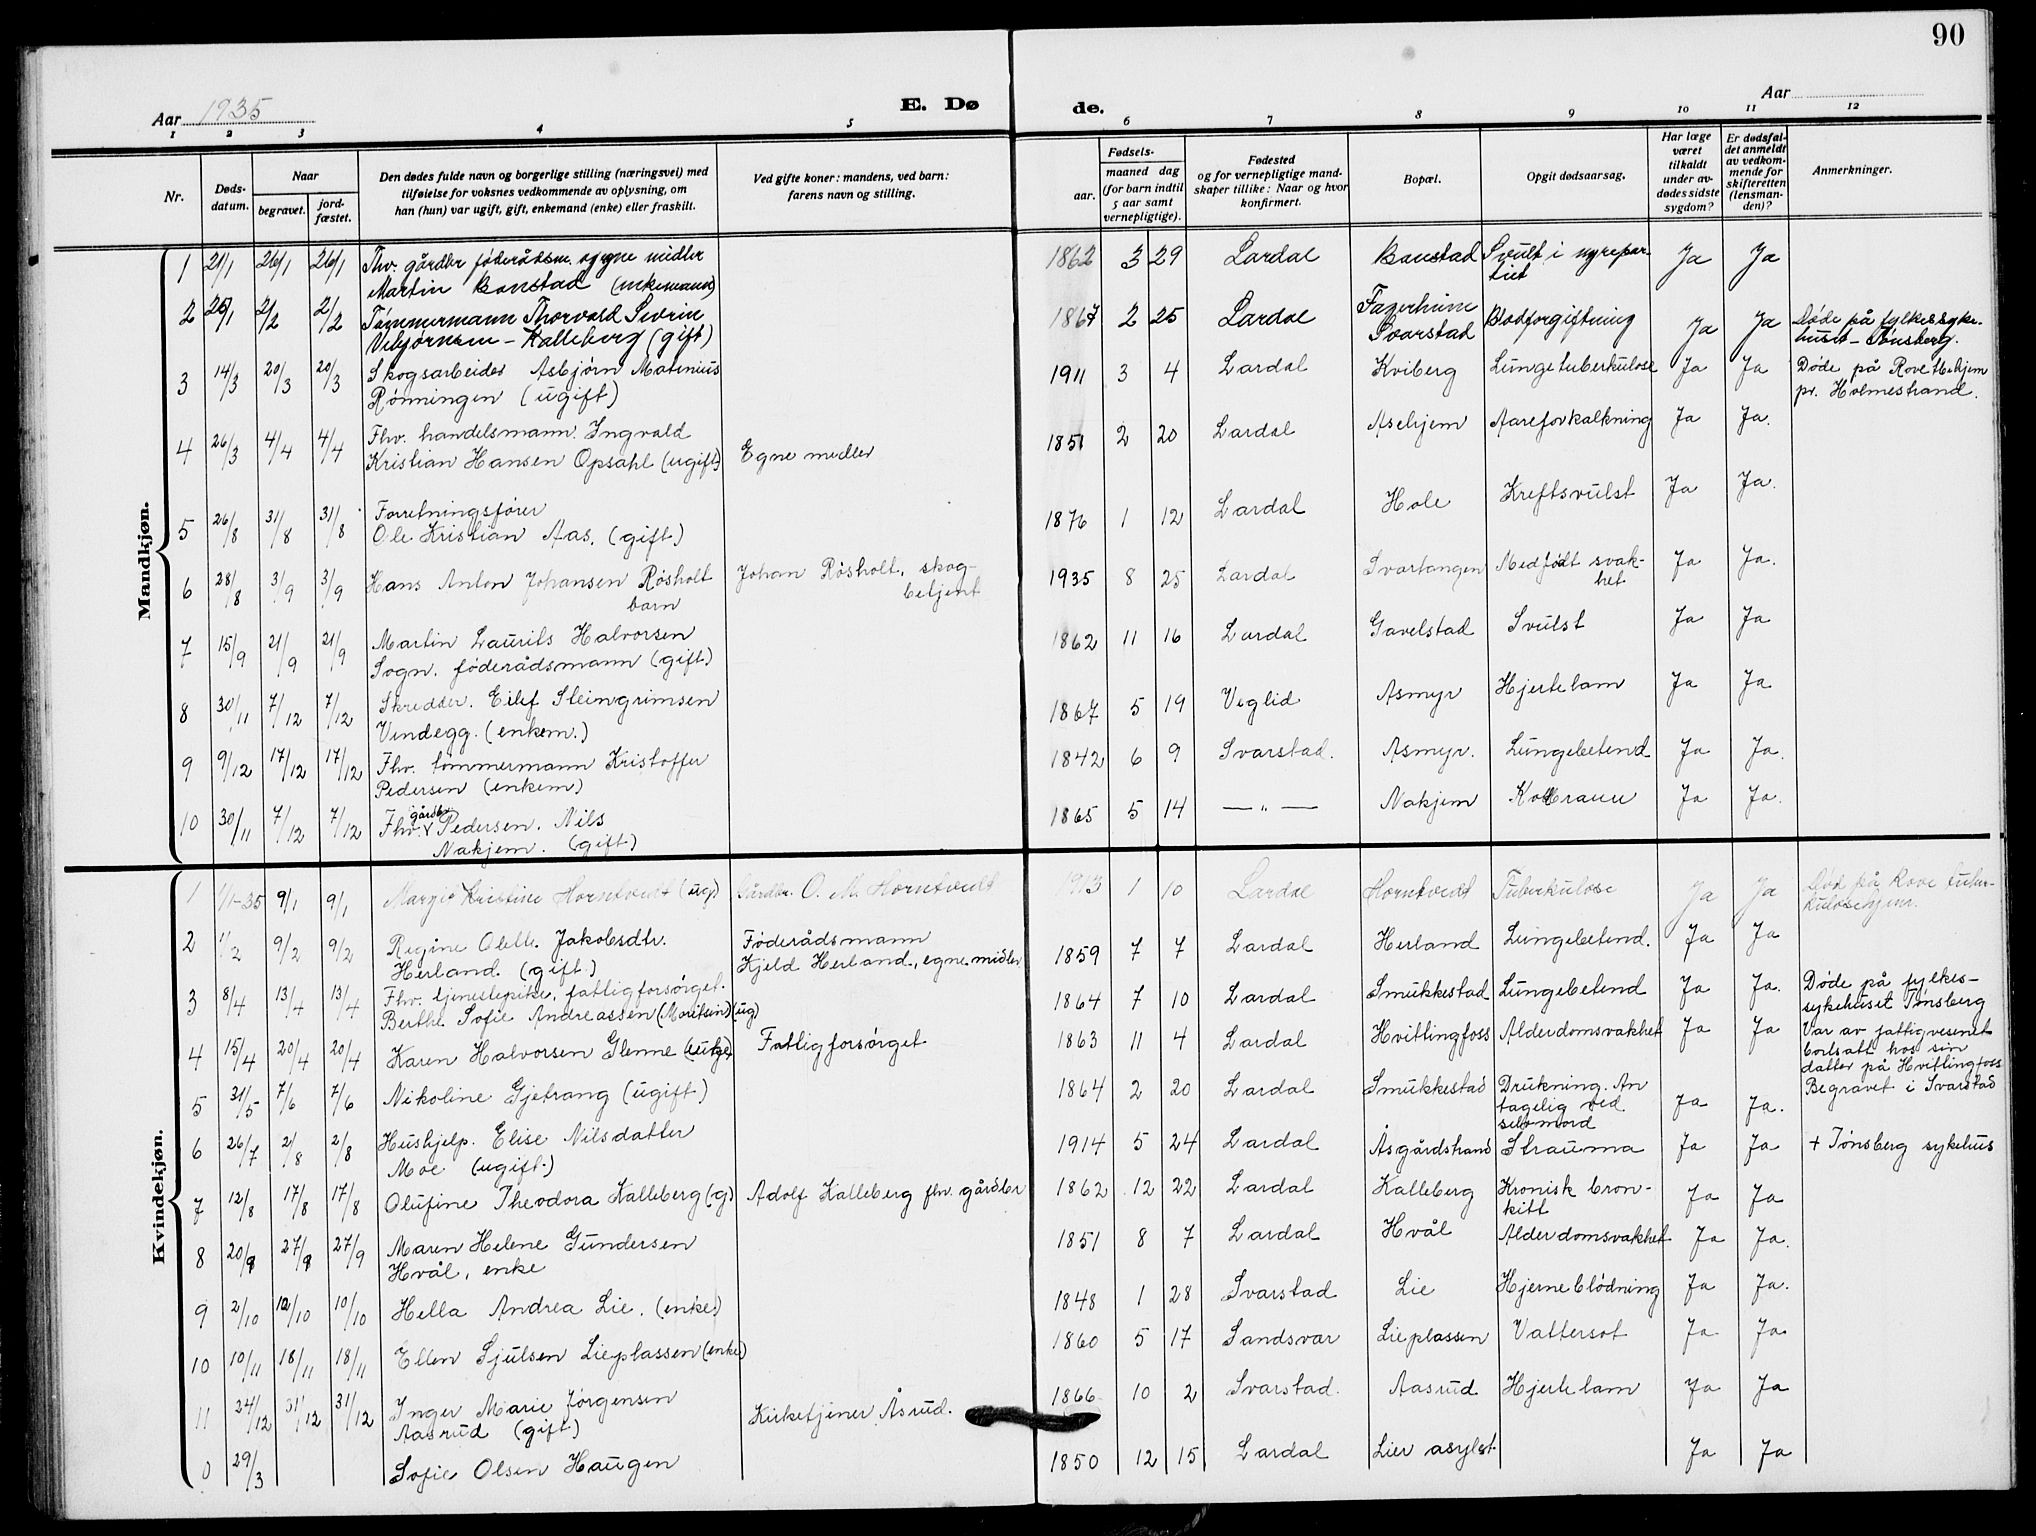 90
Aar 1935
E. Dø
de.
Aar
1 2 3 4 5 6 7 8 9 10 11 12
Nr.
Døds-datum.
Naar
begravet.
jord-fæstet.
Den dødes fulde navn og borgerlige stilling (næringsvei) med
tilføielse for voksnes vedkommende av oplysning, om
han (hun) var ugift, gift, enkemand (enke) eller fraskilt.
Ved gifte koner: mandens, ved barn:
farens navn og stilling.
Fødsels-
aar.
maaned dag
(for barn indtil
5 aar samt
vernepligtige).
Fødested
og for vernepligtige mand-
skaper tillike: Naar og hvor
konfirmert.
Bopæl.
Opgit dødsaarsag.
Har læge
været
tilkaldt
under av-
dødes sidste
sygdom?
Er dødsfal-
det anmeldt
av vedkom-
mende for
skifteretten
(lensman-
den)?
Anmerkninger.
Mandkjøn.
1 21/1 26/1 26/1 Fhv. gårdbr føderådsm. egne midler 1862 3 29 Lardal Banstad Svulst i nyrepar-
Martin Banstad (enkemand) tiet Ja Ja
2 25/1 2/2 2/2 Tømmermann Thorvald Sevrin 1867 2 25 Lardal Fagerheim Blodforgiftning Ja Ja Døde på fylkessyke-
Vebjørnsen - Kalleberg (gift) Svarstad huset - Tønsberg.
3 14/3 20/3 20/3 Skogsarbeider Asbjørn Matinius 1911 3 4 Lardal Kviberg Lungetuberkulose Ja Ja Døde på Rove tb.hjem
Rønningen (ugift) pr. Holmestrand.
4 26/3 4/4 4/4 Fhv. handelsmann Ingvald 1851 2 20 Lardal Asehjem Aareforkalkning Ja Ja.
Kristian Hansen Opsahl (ugift) Egne midler
5 26/8 31/8 31/8 Forretningsfører 1876 1 12 Lardal Hole Kreftsvulst Ja Ja.
Ole Kristian Aas. (gift)
6 28/8 3/9 3/9 Hans Anton Johansen Røsholt Johan Røsholt, skog- 1935 8 25 Lardal Svartangen Medfødt svak- Ja Ja.
barn betjent het
7 15/9 21/9 21/9 Martin Laurits Halvorsen 1862 11 16 Lardal Gavelstad Svulst Ja Ja
Sogn. føderådsmann (gift)
8 30/11 7/12 7/12 Skredder. Eilef Steingrimsen 1867 5 19 Veglid Asmyr Hjertelam Ja Ja
Vindegg. (enkem.)
9 9/12 17/12 17/12 Fhv. tømmermann Kristoffer 1842 6 9 Svarstad. Asmyr. Lungebetend Ja Ja.
Pedersen (enkem)
10 30/11 7/12 7/12 Fhv. gårdbr Pedersen. Nils 1865 5 14 — „ — Nakjem Ja Ja.
Nakjem. (gift)
Kvindekjøn.
1 1/1-35 9/1 9/1 Margit Kristine Horntvedt (ug) Gårdbr. O. M. Horntvedt 1913 1 10 Lardal Horntvedt Tuberkulose Ja Ja Død på Rove tuber-
kulosehjem.
2 1/2 9/2 9/2 Regine Olette Jakobsdtr. Føderådsmann 1859 7 7 Lardal Herland Lungebetend. Ja Ja
Herland. (gift) Kjeld Herland, egne midler
3 8/4 13/4 13/4 Fhv. tjenestepike, fattigforsørget. 1864 7 10 Lardal Smukkestad Lungebetend Ja Ja. Døde på fylkes-
Berthe Sofie Andreassen (Moritsen) (ug) sykehuset Tønsberg
4 15/4 20/4 20/4 Karen Halvorsen Glenne Fattigforsørget 1863 11 4 Lardal Hvittingfoss Alderdomsvakhet Ja Ja Var av fattigvesenet
bortsatt hos sin
datter på Hvittingfoss
Begravet i Svarstad
5 31/5 7/6 7/6 Nikoline Gjetrang (ugift) 1864 2 20 Lardal Smukkestad Drukning. An Ja Ja.
tagelig ved
selvmord
6 26/7 2/8 2/8 Hushjelp. Elise Nilsdatter 1914 5 24 Lardal Åsgårdstrand Strauma Ja Ja + Tønsberg sykehus
Moe (ugift.)
7 12/8 17/8 17/8 Olufine Theodora Kalleberg (g) Adolf Kalleberg fhv. gårdbr 1862 12 22 Lardal Kalleberg Kronisk bron- Ja Ja
kitt
8 20/9 27/9 27/9 Maren Helene Gundersen 1851 8 7 Lardal Hvål Alderdomsvakhet Ja Ja.
Hvål, enke
9 2/10 10/10 10/10 Hella Andrea Lie. (enke) 1848 1 28 Svarstad Lie Hjerneblødning Ja Ja.
10 10/11 18/11 18/11 Ellen Sjulsen Lieplassen (enke) 1860 5 17 Sandsvar Lieplassen Vattersot Ja Ja
11 24/12 31/12 31/12 Inger Marie Jørgensen Kirketjener Åsrud. 1866 10 2 Svarstad. Aasrud Hjertelam Ja Ja
Aasrud (gift)
0 29/3 Sofie Olsen Haugen 1850 12 15 Lardal Lier asylet Ja Ja